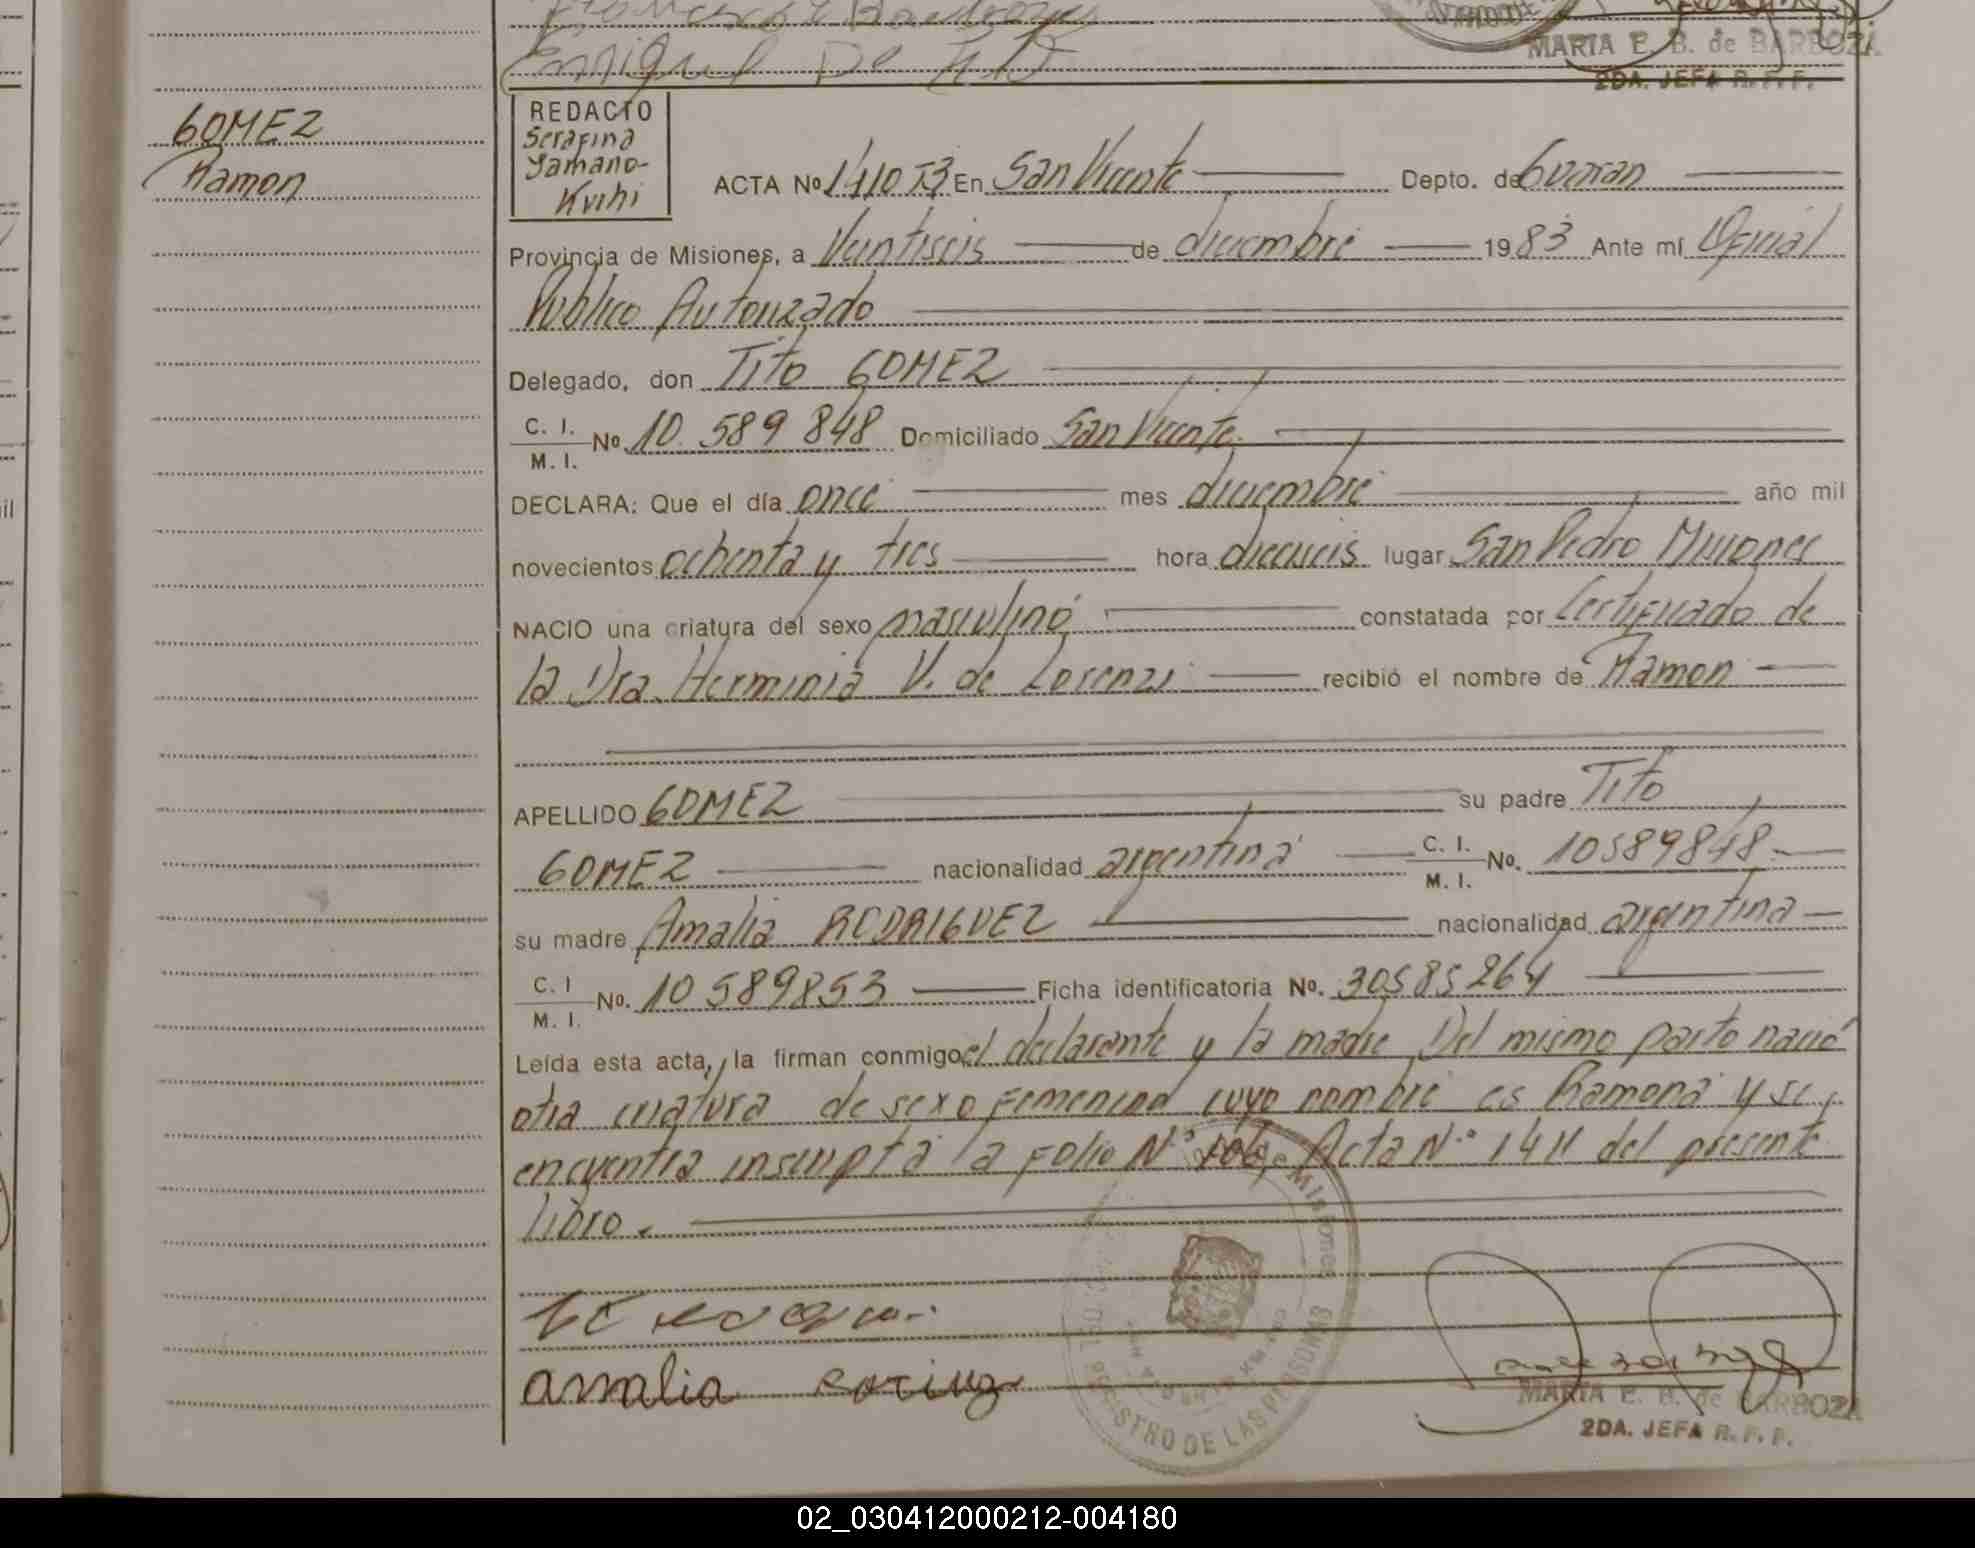 Enrique De
MARIA E. B. de BARBOZA
2DA. JEFA R. P. P.
GOMEZ
Ramon
REDACTO
Serafina
Yamano-
Kuihi
ACTA No En San Vicente Depto. de Guarani
Provincia de Misiones, a Veintiseis de diciembre 1983 Ante mí Oficial
Publico Autorizado
Delegado, don Tito GOMEZ
C. I.
M. I. No 10.589 848 Domiciliado San Vicente.
DECLARA: Que el día once mes diciembre año mil
novecientos ochenta y tres hora dieciseis lugar San Pedro Misiones
NACIO una criatura del sexo masculino constatada por Certificado de
la Dra. Herminia V. de Lorenzi recibió el nombre de Ramon
APELLIDO GOMEZ su padre Tito
GOMEZ nacionalidad argentina C. I. M. I. No. 10589848
su madre Amalia RODRIGUEZ nacionalidad argentina
C. I M. I. No. 10589853 Ficha identificatoria No. 30585264
Leída esta acta, la firman conmigo el declarante y la madre Del mismo parto nació
otra criatura de sexo femenino cuyo nombre es Ramona y se
encuentra inscripta a Folio Nº 106, Acta Nº 1411 del presente
libro.
amalia
REGISTRO DE LAS PERSONAS
Misiones
MARIA E. B. de BARBOZA
2DA. JEFA R. P. P.
02_030412000212-004180